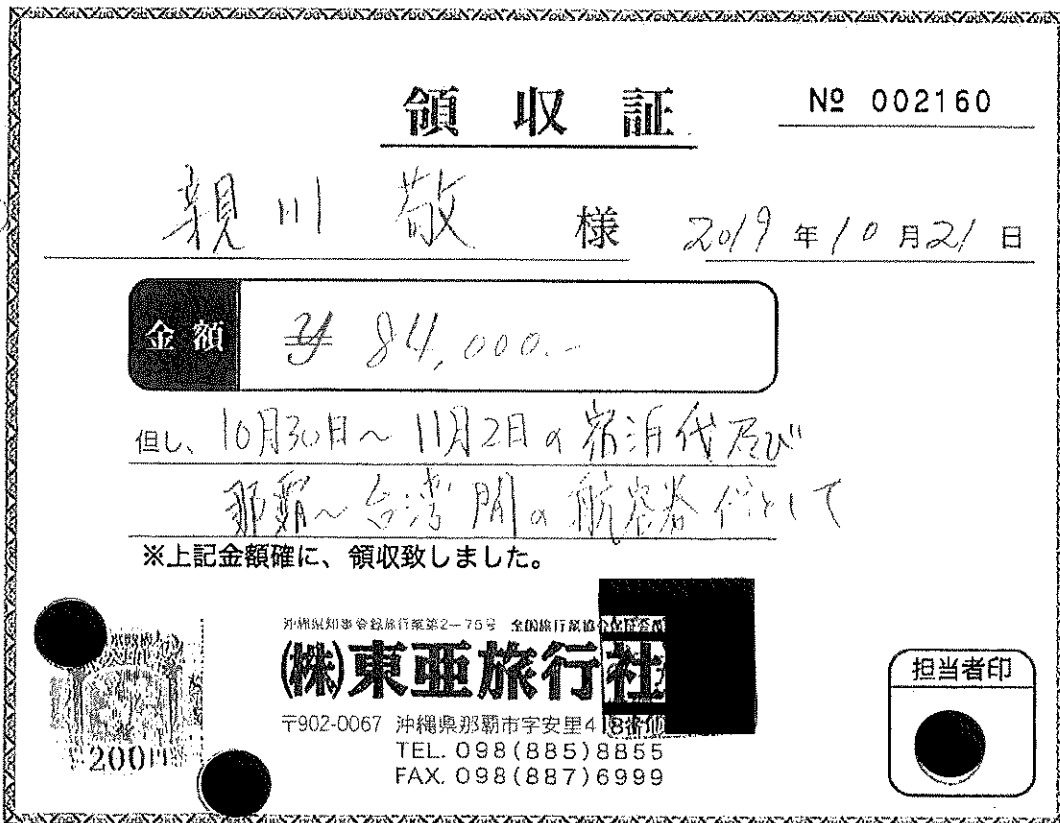 領収証
№ 002160
親川 敬 様
2019年10月21日
金額
¥84,000.-
但し、10月30日~11月2日の宿泊代及び
那覇~台湾間の航空券代として
※上記金額確に、領収致しました。
沖縄県知事登録旅行業第2-75号 全国旅行業協会保証会員
(株)東亜旅行社
〒902-0067 沖縄県那覇市字安里41
TEL. 098(885)8855
FAX. 098(887)6999
200円
担当者印